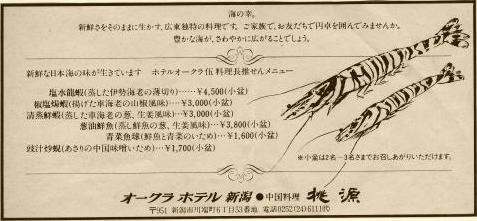 海の幸。
新鮮さをそのままに生かす、広東独特の料理です。ご家族で、お友だちで円卓を囲んでみませんか。
豊かな海が、さわやかに広がることでしょう。
新鮮な日本海の味が生きています ホテルオークラ伍料理長推せんメニュー
塩水龍蝦(蒸した伊勢海老の薄切り)……¥4,500(小盆)
椒塩焗蝦(揚げた車海老の山椒風味)…¥3,000(小盆)
清蒸鮮蝦(蒸した車海老の葱、生姜風味)…¥3,000(小盆)
葱油鮮魚(蒸し鮮魚の葱、生姜風味)…¥3,800(小盆)
青菜魚球(鮮魚と青菜のいため)…¥1,600(小盆)
豉汁炒蜆(あさりの中国味噌いため)…¥1,700(小盆)
※小盆は2名〜3名さまでお召しあがりいただけます。
オークラ ホテル 新潟 ●中国料理 桃源
〒951 新潟市川端町6丁目53番地 電話0252(24)6111㈹